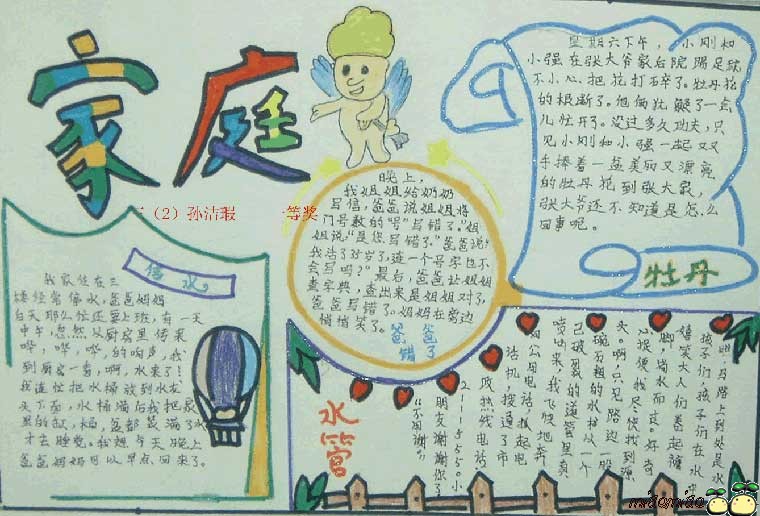 家庭
二（2）孙洁瑕 一等奖
星期六下午，小刚和
小强在张大爷家后院踢足球
不小心把花打碎了。牡丹花
的根断了。他俩
儿忙开了。没过多久功夫，只
见小刚和小强一起双
手捧着一盆美丽又漂亮
的牡丹花到张大爷家，
张大爷还不知道是怎么
回事呢。
牡丹
晚上，
我姐姐给奶奶
写信，爸爸说姐姐将
门号数的"号"写错了。"姐
姐说："是您写错了。"爸爸说："
我活了35岁了，连一个号字也不
会写吗？"最后，爸爸让姐姐
查字典，查出来是姐姐对了，
爸爸写错了。妈妈在旁边
悄悄笑了。
爸爸
错了
停水
我家住在三
楼经常停水，爸爸妈妈
白天那么忙还要上班，有一天
中午，忽然从厨房里传来
哗，哗，哗，的响声，我
到厨房一看，啊，水来了！
我连忙把水桶放到水龙
头下面，水桶满后我把家
里的缸，锅，盆都装满了水
才去睡觉。我想今天晚上
爸爸妈妈可以早点回来了。
水管
马路上到处是水
孩子们，孩子们在水
嬉笑大人们卷起裤
脚，淌水而过。好奇
心促使我尽快找到源
头。啊，只见路边一股
碗石粗的水柱从一个
已破裂的道管里真
喷出来，我飞快地奔
向公用电话，拔起电
话机，拨通了市
政热线电话
2111555。"小
朋友谢谢你了
"不用谢"。
miaomiao